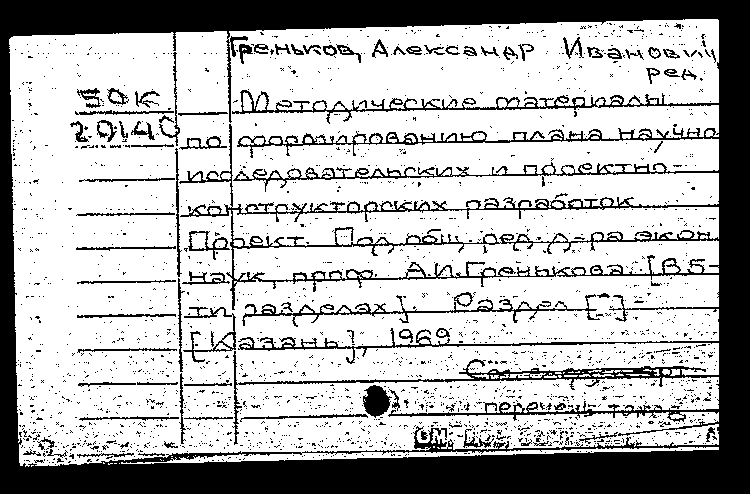 Греньков, Александр Иванович,
ред.
50к
20140
Методические материалы
по формированию плана научно
исследовательских и проектно-
конструкторских разработок.
Проект. Под общ. ред. д-ра экон.
наук, проф. А.И. Гренькова. [В 5-
ти разделах]. Раздел [ ]-
[Казань], 1969.
См. след. карт.
перечень томов